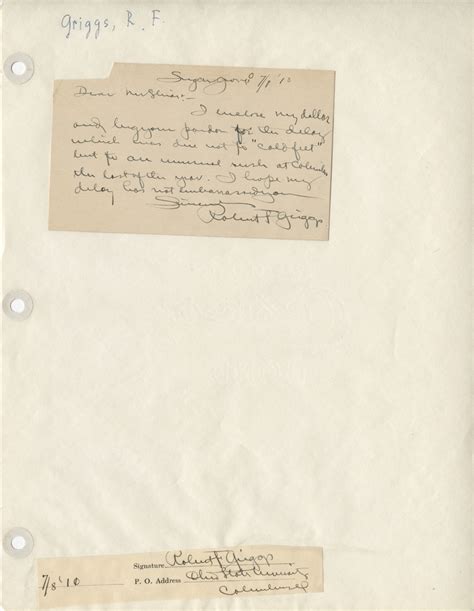 Griggs, R. F.
Sugar Grove O 7/8 '10
Dear Mr Shriver:-
I inclose my dollar
and beg your pardon for the delay
which was due not to "cold feet"
but to an unusual rush at Columbus
the last of the year. I hope my
delay has not embarrassed you
Sincerely
Robert F Griggs
Signature Robert F Griggs
7/8 '10 P. O. Address Ohio State University
Columbus O